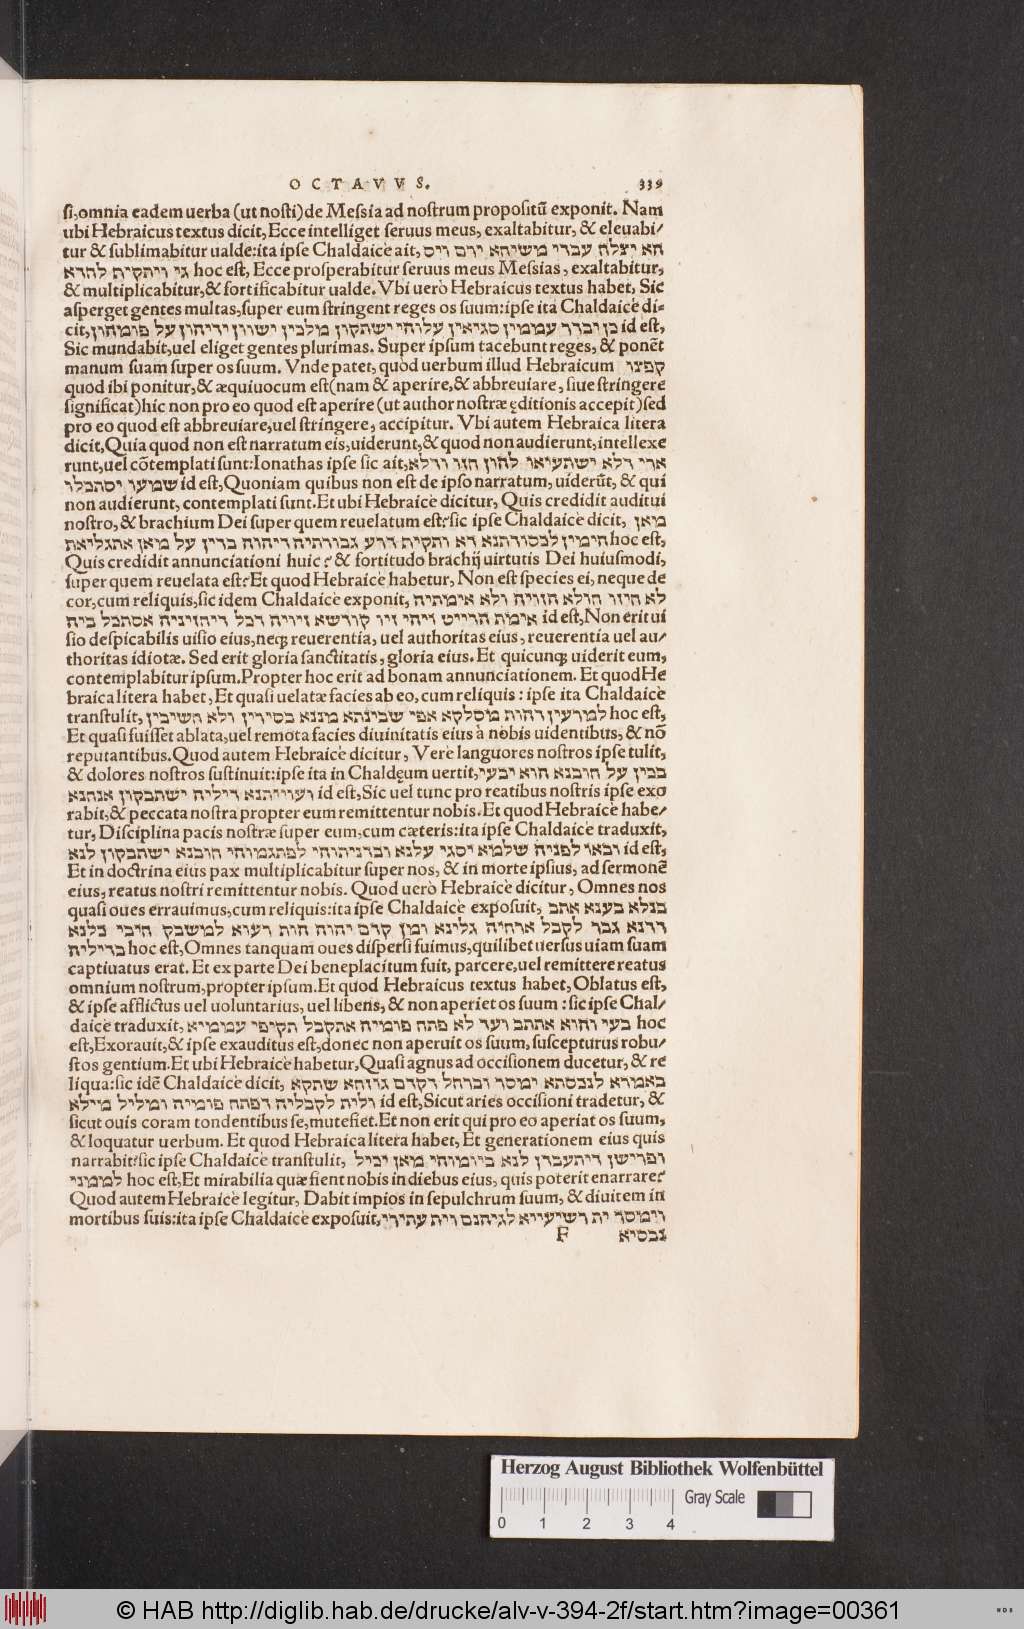 OCTAVVS. 339
si,omnia eadem uerba (ut nosti) de Messia ad nostrum propositū exponit. Nam
ubi Hebraicus textus dicit, Ecce intelliget seruus meus, exaltabitur, & eleuabi/
tur & sublimabitur ualde:ita ipse Chaldaice ait, הא יצלח עבדי משיחא ירם ויס
גי ויתקיף לחדא hoc est, Ecce prosperabitur seruus meus Messias, exaltabitur,
& multiplicabitur,& fortificabitur ualde. Vbi uerò Hebraicus textus habet, Sic
asperget gentes multas,super eum stringent reges os suum:ipse ita Chaldaicè di-
cit, כן יבדר עממין סגיאין עלוהי ישתקון מלכין ישוון ידיהון על פומהון id est,
Sic mundabit,uel eliget gentes plurimas. Super ipsum tacebunt reges, & ponēt
manum suam super os suum. Vnde patet, quòd uerbum illud Hebraicum קפצו
quod ibi ponitur,& æquiuocum est(nam & aperire,& abbreuiare, siue stringere
significat)hic non pro eo quod est aperire (ut author nostræ ęditionis accepit) sed
pro eo quod est abbreuiare,uel stringere, accipitur. Vbi autem Hebraica litera
dicit, Quia quod non est narratum eis,uiderunt,& quod non audierunt,intellexe
runt,uel cōtemplati sunt:Ionathas ipse sic ait, ארי דלא ישתעיאו להון חזו ודלא
שמעו יסתכלו id est, Quoniam quibus non est de ipso narratum, uiderūt, & qui
non audierunt, contemplati sunt. Et ubi Hebraicè dicitur, Quis credidit auditui
nostro, & brachium Dei super quem reuelatum est?sic ipse Chaldaicè dicit, מאן
הימין לבסורתנא דא ותקיף דרע גבורתיה דיהוה כדין על מאן אתגליאת hoc est,
Quis credidit annunciationi huic? & fortitudo brachij uirtutis Dei huiusmodi,
super quem reuelata est? Et quod Hebraicè habetur, Non est species ei, neque de
cor,cum reliquis,sic idem Chaldaicè exponit, לא חיזו חולא חזויה ולא אימתיה
אימת הדיוט ויהי זיו קודשא זיויה דכל דיחזיניה אסתכל ביה id est, Non erit ui
sio despicabilis uisio eius,neq; reuerentia, uel authoritas eius, reuerentia uel au/
thoritas idiotæ. Sed erit gloria sanctitatis, gloria eius. Et quicunq; uiderit eum,
contemplabitur ipsum. Propter hoc erit ad bonam annunciationem. Et quod He
braica litera habet, Et quasi uelatæ facies ab eo, cum reliquis : ipse ita Chaldaicè
transtulit, למרעין דהות מסלקא אפי שכינתא מננא בסירין ולא חשיבין hoc est,
Et quasi fuisset ablata,uel remota facies diuinitatis eius à nobis uidentibus, & nō
reputantibus. Quod autem Hebraicè dicitur, Verè languores nostros ipse tulit,
& dolores nostros sustinuit:ipse ita in Chaldęum uertit, בכין על חובנא הוא יבעי
ועוייתנא דיליה ישתבקון אנחנא id est, Sic uel tunc pro reatibus nostris ipse exo
rabit,& peccata nostra propter eum remittentur nobis. Et quod Hebraicè habe/
tur, Disciplina pacis nostræ super eum,cum cæteris:ita ipse Chaldaicè traduxit,
ובאולפניה שלמא יסגי עלנא ובדניהוהי לפתגמוהי חובנא ישתבקון לנא id est,
Et in doctrina eius pax multiplicabitur super nos, & in morte ipsius, ad sermonē
eius, reatus nostri remittentur nobis. Quod uerò Hebraicè dicitur, Omnes nos
quasi oues errauimus,cum reliquis:ita ipse Chaldaicè exposuit, כולא כענא אתב
דרנא גבר לקבל ארחיה גלינא ומן קדם יהוה הות רעוא למשבק חובי כלנא
בדיליה hoc est, Omnes tanquam oues dispersi fuimus,quilibet uersus uiam suam
captiuatus erat. Et ex parte Dei beneplacitum fuit, parcere,uel remittere reatus
omnium nostrum,propter ipsum. Et quod Hebraicus textus habet, Oblatus est,
& ipse afflictus uel uoluntarius, uel libens, & non aperiet os suum : sic ipse Chal/
daicè traduxit, בעי והוא אתתב ועד לא פתח פומיה אתקבל תקיפי עממיא hoc
est, Exorauit,& ipse exauditus est,donec non aperuit os suum, suscepturus robu/
stos gentium. Et ubi Hebraicè habetur, Quasi agnus ad occisionem ducetur, & re
liqua:sic idē Chaldaicè dicit, כאמרא לנכסתא ימסר וכרחל דקדם גוזהא שתקא
ולית לקבליה דפתח פומיה ומליל מילא id est, Sicut aries occisioni tradetur, &
sicut ouis coram tondentibus se, mutefiet. Et non erit qui pro eo aperiat os suum,
& loquatur uerbum. Et quod Hebraica litera habet, Et generationem eius quis
narrabit?sic ipse Chaldaicè transtulit, ופרישן דיתעבדן לנא ביומוהי מאן יכיל
למימני hoc est, Et mirabilia quæ fient nobis in diebus eius, quis poterit enarrare?
Quod autem Hebraicè legitur, Dabit impios in sepulchrum suum, & diuitem in
mortibus suis:ita ipse Chaldaicè exposuit, וימסר ית רשיעייא לגיהנם וית עתירי
F נכסיא
Herzog August Bibliothek Wolfenbüttel
Gray Scale
0 1 2 3 4
© HAB http://diglib.hab.de/drucke/alv-v-394-2f/start.htm?image=00361